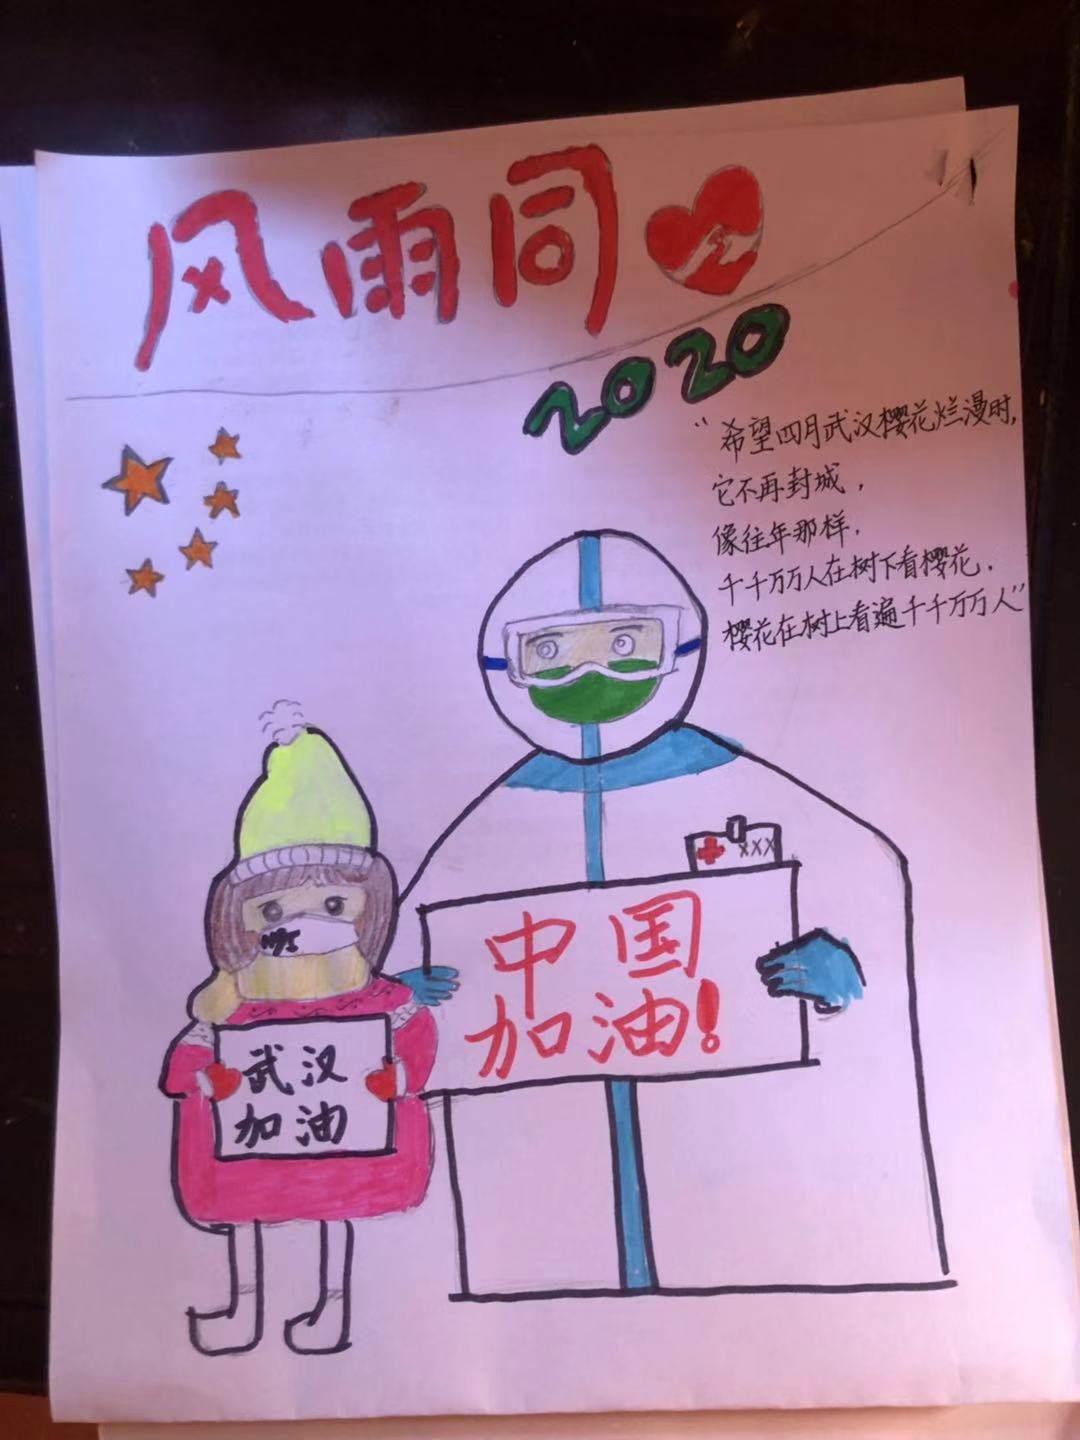 风雨同
2020
“希望四月武汉樱花烂漫时，
它不再封城，
像往年那样，
千千万万人在树下看樱花，
樱花在树上看遍千千万万人”
XXX
中国
加油！
武汉
加油